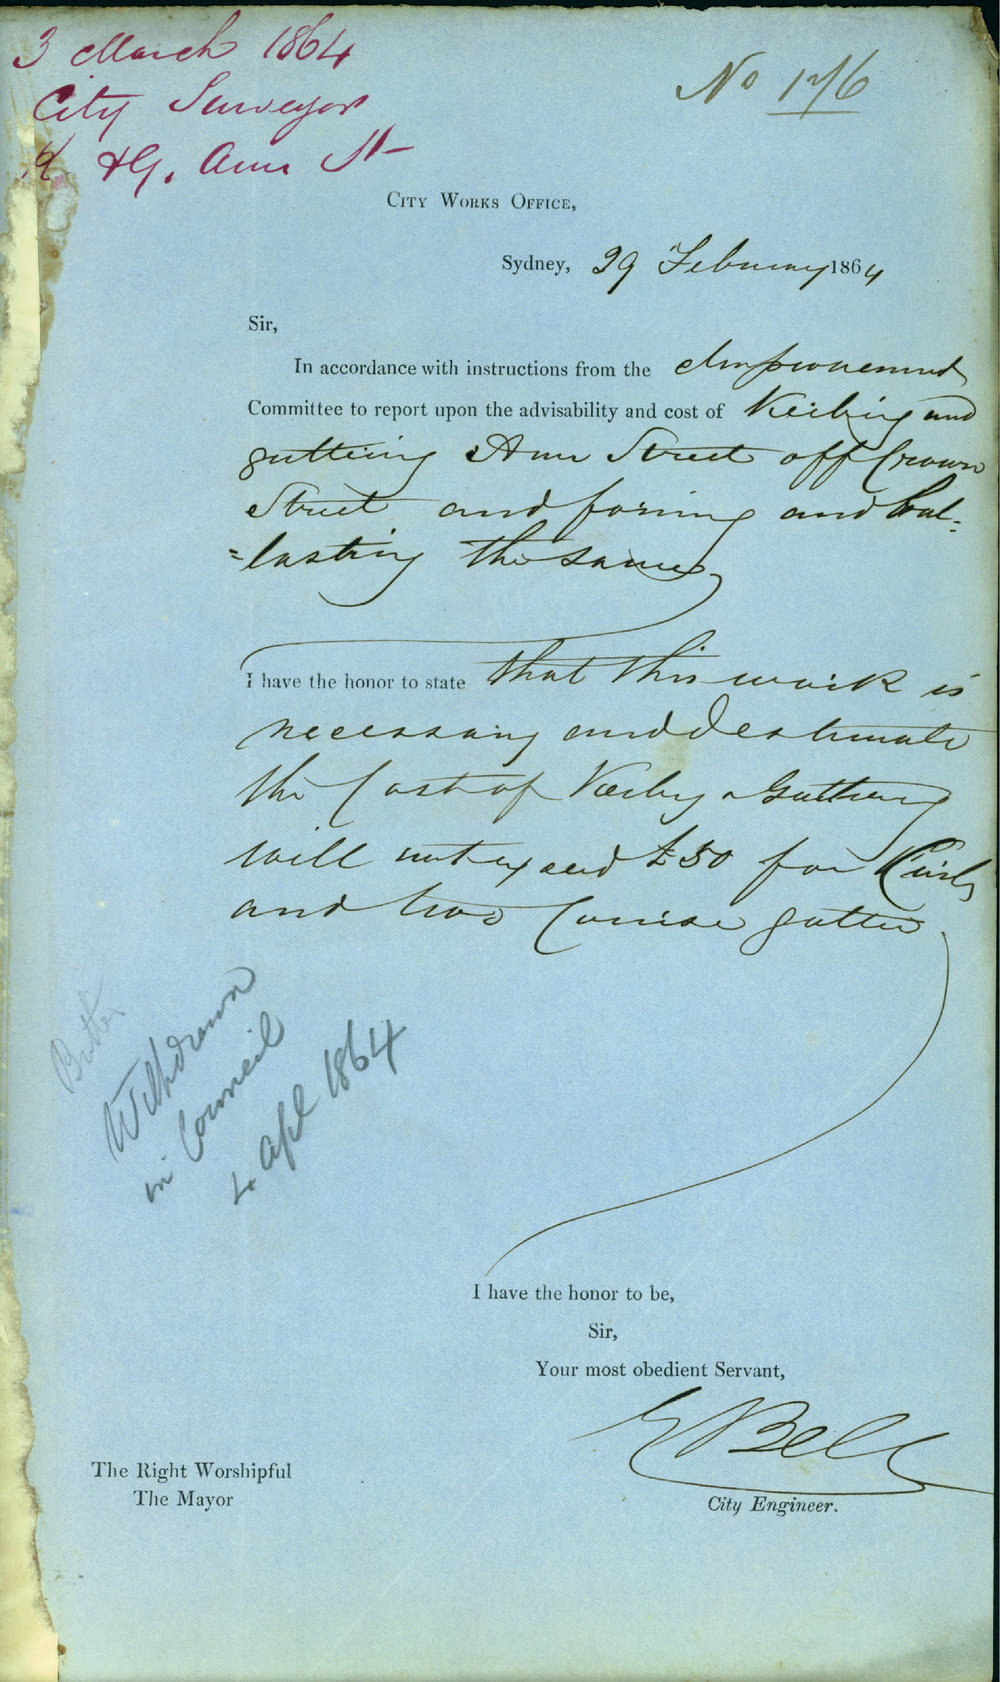 3 March 1864
City Surveyor
K. & G. Ann St
No 176
City Works Office,
Sydney, 29 February 1864
Sir,
In accordance with instructions from the Improvement
Committee to report upon the advisability and cost of Kerbing and
guttering Ann Street off Crown
Street and forming and bal-
=lasting the same
I have the honor to state that this work is
necessary and I estimate
the Cost of Kerbg & Guttering
will not exceed £50 for Kerb
and two Course gutter
Withdrawn
in Council
4 Apl 1864
I have the honor to be,
Sir,
Your most obedient Servant,
E Bell
City Engineer.
The Right Worshipful
The Mayor